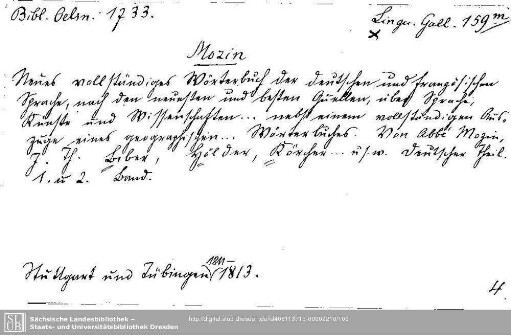 Bibl. Oelsn. 1733.
Lingu. Gall. 159ᵐ
Mozin
Neues vollständiges Wörterbuch der deutschen und französischen
Sprache, nach den neuesten und besten Quellen, über Sprache,
Künste und Wissenschaften... nebst einem vollständigen Aus-
zuge eines geographischen... Wörterbuches. Von Abbé Mozin,
J. Th. Biber, Hölder, Körcher... u.s.w. Deutscher Theil.
1. u 2. Band.
Stuttgart und Tübingen 1811–1813.
4.
Sächsische Landesbibliothek –
Staats- und Universitätsbibliothek Dresden